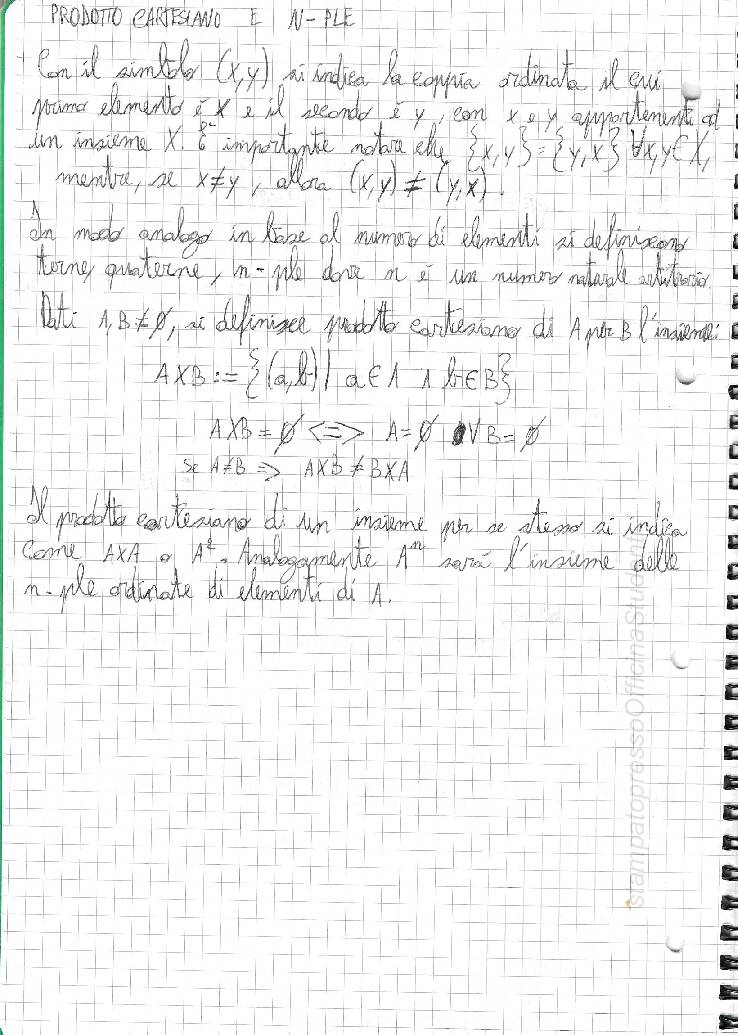 PRODOTTO CARTESIANO E N-PLE
Con il simbolo (x,y) si indica la coppia ordinata il cui
primo elemento è x e il secondo è y, con x e y appartenenti ad
un insieme X. È importante notare che {x,y}={y,x} ∀x,y∈X,
mentre, se x≠y, allora (x,y)≠(y,x).
In modo analogo in base al numero di elementi si definiscono
terne, quaterne, n-ple dove n è un numero naturale arbitrario
Dati A,B≠∅, si definisce prodotto cartesiano di A per B l'insieme:
AXB:={(a,b)| a∈A ∧ b∈B}
AXB=∅ <=> A=∅ ∨ B=∅
Se A≠B => AXB≠BXA
Il prodotto cartesiano di un insieme per se stesso si indica
come AXA o A². Analogamente Aⁿ sarà l'insieme delle
n-ple ordinate di elementi di A.
stampatopressoOfficinaStud